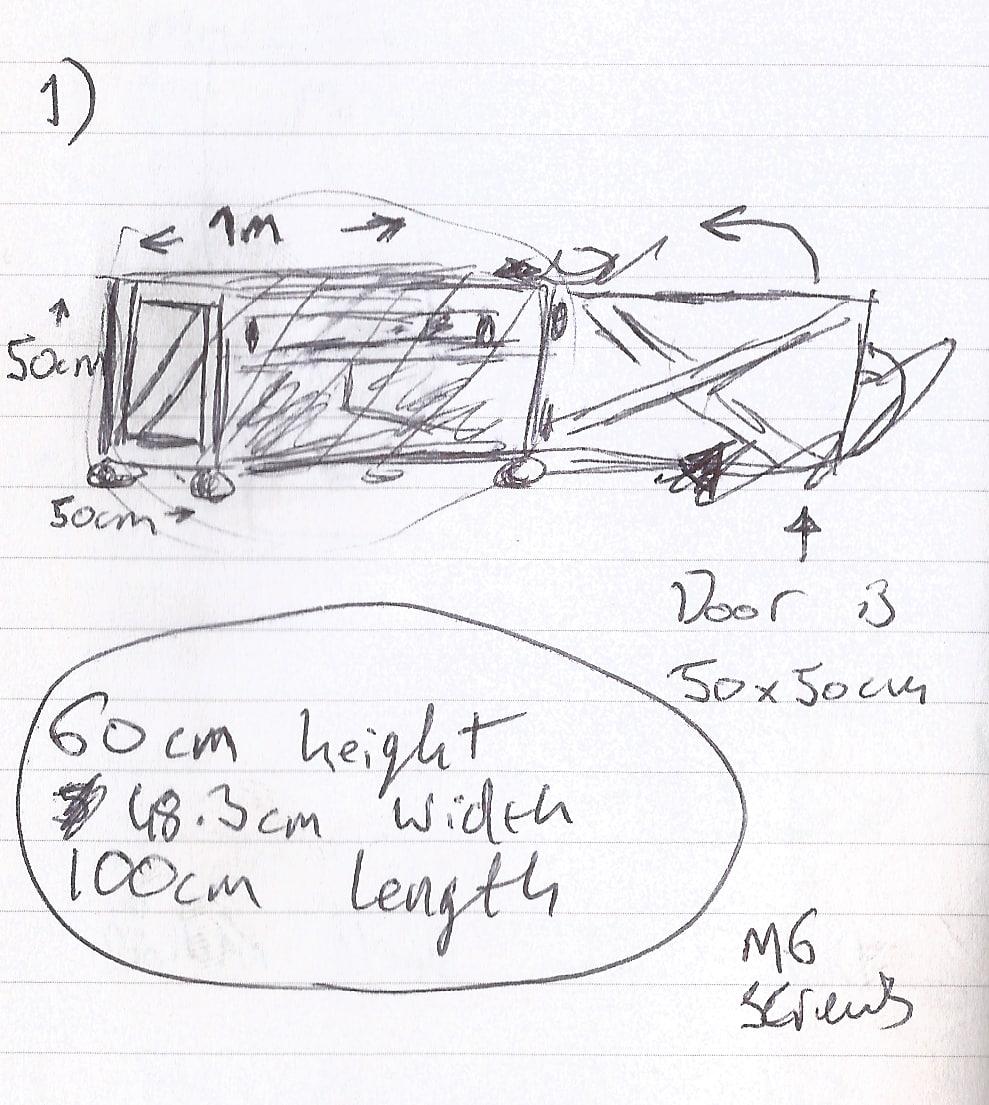 1)
1m
50cm
50cm
Door is
50x50cm
60cm height
48.3cm width
100cm length
M6
screws